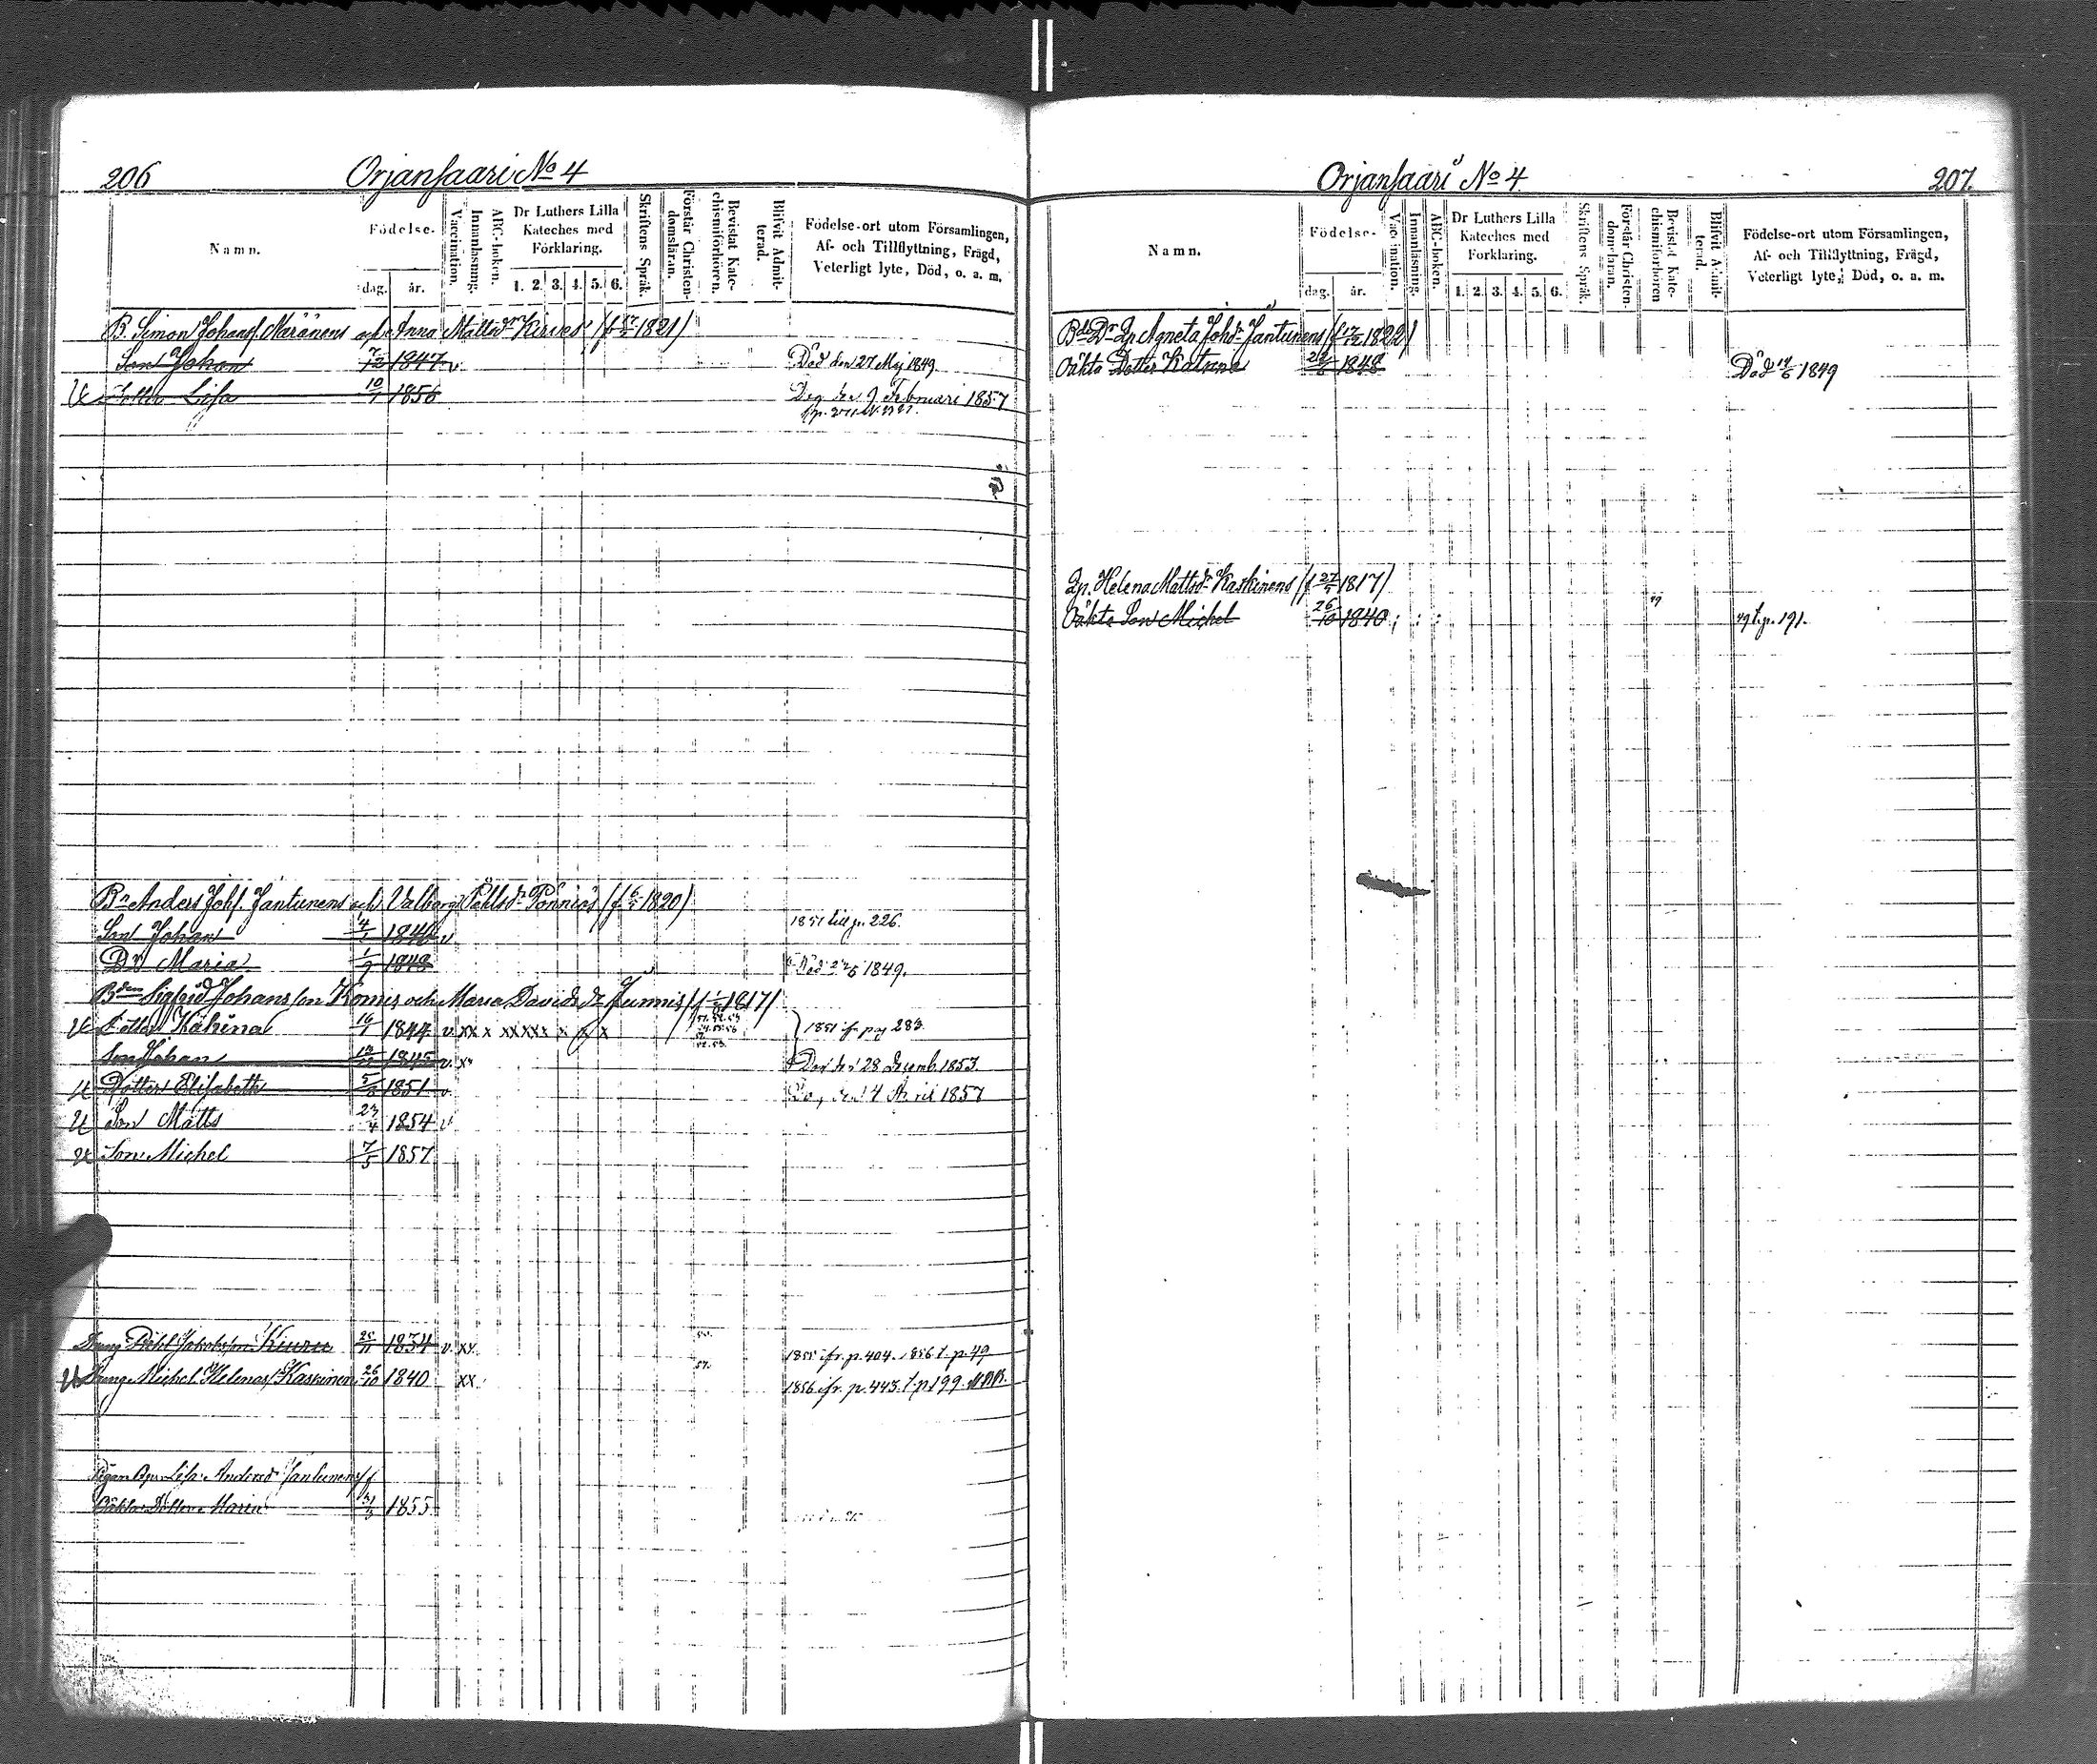 206 Orjansaari No 4
Namn.
Födelse.
dag. år.
Vaccination.
Innanläsning.
ABC-boken.
Dr Luthers Lilla
Kateches med
Förklaring.
1. 2. 3. 4. 5. 6.
Skriftens Språk.
Förstår Christen-
domsläran.
Bevistat Kate-
chismiförhören.
Blifvit Admit-
terad.
Födelse-ort utom Församlingen,
Af- och Tillflyttning, Frägd,
Veterligt lyte, Död, o. a. m.
B. Simon Johans. Maränens och Anna Mattsdr Kirves 1821)
Son Johan 1847 v Död den 27 Maj 1849
Dotter Lisa 10/1 1856 den 9 Februari 1857
Bn Anders Johs. Jantunens och Valborg Påhlsdr Pönniös 1820)
Son Johan 1846 v 1851 till p. 226.
Dr Maria 1/9 1848 Död 1849.
Bden Sigfrid Johansson Komis och Maria Davidsdr Junnis 1817)
Dotter 1844 v xx x xxxxx x x x 1851 ifr pag 283
Son Johan 1845 v. x Död den 28 Decemb. 1853
Dotter Elisabeth 1851 v April 1857
Son Matts 23/4 1854 v
Son Michel 7/5 1857
Dräng Påhl Jakobsson Kiuru 1834 v xx 1855 ifr. p. 404. 1856 t. p. 49
Dräng Michel Helenas. Kaskinen 26/10 1840 xx 57. 1856 ifr. p. 443. t. p 199.
Lisa Andersdr Jantunens
Oäkta Dotter Maria 1855
Orjansaari No 4 207.
Namn.
Födelse.
dag. år.
Vaccination.
Innanläsning.
ABC-boken.
Dr Luthers Lilla
Kateches med
Förklaring.
1. 2. 3. 4. 5. 6.
Skriftens Språk.
Förstår Christen-
domsläran.
Bevistat Kate-
chismiförhören
Blifvit Admit-
terad.
Födelse-ort utom Församlingen,
Af- och Tillflyttning, Frägd,
Veterligt lyte, Död, o. a. m.
Agneta Johdr Jantunens 1822)
Oäkta Dotter Katrina 1848 Död 1849
Qp. Helena Mattsdr Kaskinens 1817)
Oäkta Son Michel 26/10 1840 49 t. p. 191.